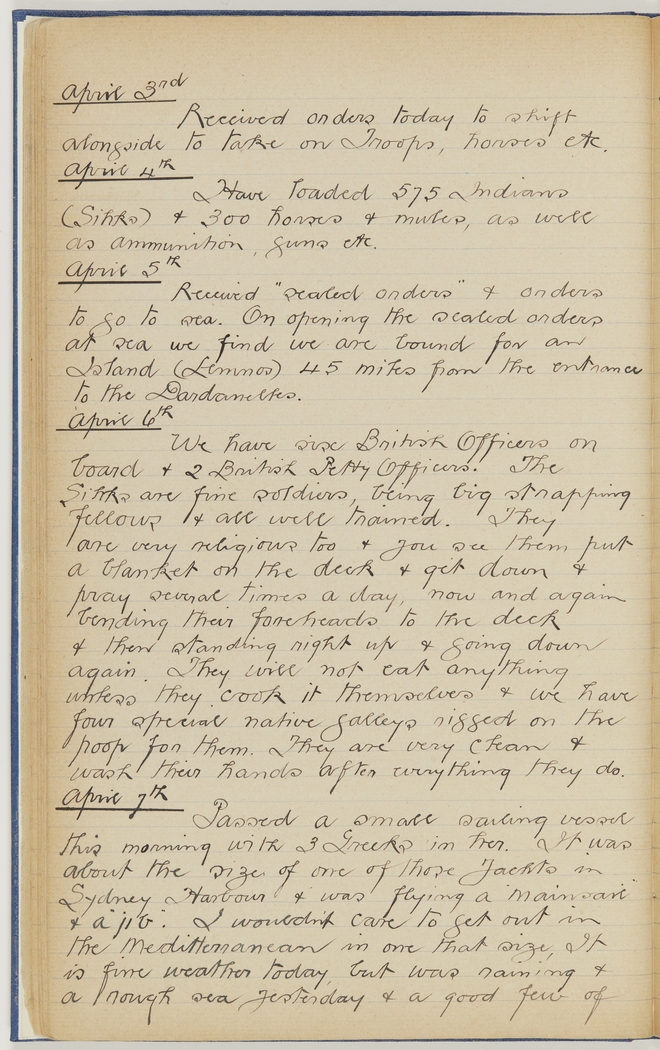 April 3rd
Received orders today to shift
alongside to take on Troops, horses etc.
April 4th
Have loaded 575 Indians
(Sikks) & 300 horses & mules, as well
as ammunition, guns etc.
April 5th
Received "sealed orders" & orders
to go to sea. On opening the sealed orders
at sea we find we are bound for an
Island (Lemnos) 45 miles from the entrance
to the Dardanelles.
April 6th
We have six British Officers on
board & 2 British Petty Officers. The
Sikks are fine soldiers, being big strapping
fellows & all well trained. They
are very religious too & you see them put
a blanket on the deck & get down &
pray several times a day, now and again
bending their foreheads to the deck
& then standing right up & going down
again. They will not eat anything
unless they cook it themselves & we have
four special native galleys rigged on the
poop for them. They are very clean &
wash their hands after everything they do.
April 7th
Passed a small sailing vessel
this morning with 3 Greeks in her. It was
about the size of one of those Yachts in
Sydney Harbour & was flying a "mainsail"
& a "jib". I wouldn't care to get out in
the Mediterranean in one that size, It
is fine weather today, but was raining &
a rough sea yesterday & a good few of